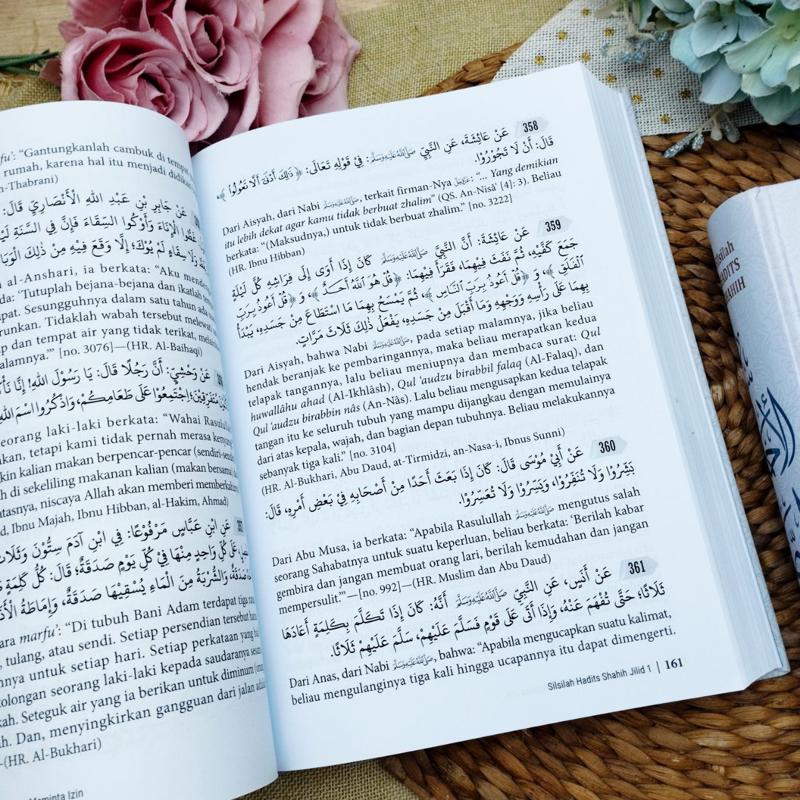 fu': "Gantungkanlah cambuk di tempat
rumah, karena hal itu menjadi didikan
n-Thabrani)
عَنْ جَابِرِ بْنِ عَبْدِ اللهِ الْأَنْصَارِيِّ قَالَ:
al-Anshari, ia berkata: "Aku mende
da: 'Tutuplah bejana-bejana dan ikatlah
pat. Sesungguhnya dalam satu tahun ada
urunkan. Tidaklah wabah tersebut melewat
up dan tempat air yang tidak terikat, melain
alamnya.'" [no. 3076]—(HR. Al-Baihaqi)
عَنْ وَحْشِيٍّ: أَنَّ رَجُلًا قَالَ: يَا رَسُوْلَ اللهِ! إِنَّا نَأْ
اجْتَمِعُوْا عَلَى طَعَامِكُمْ، وَاذْكُرُوا اسْمَ اللهِ
seorang laki-laki berkata: "Wahai Rasulul
akan, tetapi kami tidak pernah merasa kenyang
kin kalian makan berpencar-pencar (sendiri-send
h di sekeliling makanan kalian (makan bersama)
ntasnya, niscaya Allah akan memberi memberkahi
d, Ibnu Majah, Ibnu Hibban, al-Hakim, Ahmad)
عَنِ ابْنِ عَبَّاسٍ مَرْفُوْعًا: فِي ابْنِ آدَمَ سِتُّوْنَ وَثَلَاثُ
عَلَى كُلِّ وَاحِدٍ مِنْهَا فِيْ كُلِّ يَوْمٍ صَدَقَةٌ؛ قَالَ: كُلُّ كَلِمَةٍ
صَدَقَةٌ، وَالشُّرْبَةُ مِنَ الْمَاءِ يُسْقِيْهَا صَدَقَةٌ، وَإِمَاطَةُ الْأَذَى
ara marfu': "Di tubuh Bani Adam terdapat tiga ra
, tulang, atau sendi. Setiap persendian tersebut har
nya untuk setiap hari. Setiap perkataan yang b
olongan seorang laki-laki kepada saudaranya se
kah. Seteguk air yang ia berikan untuk diminum
h. Dan, menyingkirkan gangguan dari jalan adal
—(HR. Al-Bukhari)
Meminta Izin
358 عَنْ عَائِشَةَ، عَنِ النَّبِيِّ ﷺ: فِيْ قَوْلِهِ تَعَالَى: ﴿ذَلِكَ أَدْنَى أَلَّا تَعُوْلُوا﴾،
قَالَ: أَنْ لَا تَجُوْرُوْا.
Dari Aisyah, dari Nabi ﷺ, terkait firman-Nya: "... Yang demikian
itu lebih dekat agar kamu tidak berbuat zhalim" (QS. An-Nisâ' [4]: 3). Beliau
berkata: "(Maksudnya,) untuk tidak berbuat zhalim." [no. 3222]
(HR. Ibnu Hibban)
359 عَنْ عَائِشَةَ: أَنَّ النَّبِيَّ ﷺ كَانَ إِذَا أَوَى إِلَى فِرَاشِهِ كُلَّ لَيْلَةٍ
جَمَعَ كَفَّيْهِ، ثُمَّ نَفَثَ فِيْهِمَا، فَقَرَأَ فِيْهِمَا: ﴿قُلْ هُوَ اللهُ أَحَدٌ﴾ وَ ﴿قُلْ أَعُوْذُ بِرَبِّ
الْفَلَقِ﴾ وَ ﴿قُلْ أَعُوْذُ بِرَبِّ النَّاسِ﴾، ثُمَّ يَمْسَحُ بِهِمَا مَا اسْتَطَاعَ مِنْ جَسَدِهِ، يَبْدَأُ
بِهِمَا عَلَى رَأْسِهِ وَوَجْهِهِ وَمَا أَقْبَلَ مِنْ جَسَدِهِ، يَفْعَلُ ذَلِكَ ثَلَاثَ مَرَّاتٍ.
Dari Aisyah, bahwa Nabi ﷺ, pada setiap malamnya, jika beliau
hendak beranjak ke pembaringannya, maka beliau merapatkan kedua
telapak tangannya, lalu beliau meniupnya dan membaca surat: Qul
huwallâhu ahad (Al-Ikhlâsh), Qul 'audzu birabbil falaq (Al-Falaq), dan
Qul 'audzu birabbin nâs (An-Nâs). Lalu beliau mengusapkan kedua telapak
tangan itu ke seluruh tubuh yang mampu dijangkau dengan memulainya
dari atas kepala, wajah, dan bagian depan tubuhnya. Beliau melakukannya
sebanyak tiga kali." [no. 3104]
(HR. Al-Bukhari, Abu Daud, at-Tirmidzi, an-Nasa-i, Ibnus Sunni)
360 عَنْ أَبِيْ مُوْسَى قَالَ: كَانَ إِذَا بَعَثَ أَحَدًا مِنْ أَصْحَابِهِ فِيْ بَعْضِ أَمْرِهِ، قَالَ:
بَشِّرُوْا وَلَا تُنَفِّرُوْا، وَيَسِّرُوْا وَلَا تُعَسِّرُوْا.
Dari Abu Musa, ia berkata: "Apabila Rasulullah ﷺ mengutus salah
seorang Sahabatnya untuk suatu keperluan, beliau berkata: 'Berilah kabar
gembira dan jangan membuat orang lari, berilah kemudahan dan jangan
mempersulit.'"—[no. 992]—(HR. Muslim dan Abu Daud)
361 عَنْ أَنَسٍ، عَنِ النَّبِيِّ ﷺ أَنَّهُ: كَانَ إِذَا تَكَلَّمَ بِكَلِمَةٍ أَعَادَهَا
ثَلَاثًا؛ حَتَّى تُفْهَمَ عَنْهُ، وَإِذَا أَتَى عَلَى قَوْمٍ فَسَلَّمَ عَلَيْهِمْ، سَلَّمَ عَلَيْهِمْ ثَلَاثًا.
Dari Anas, dari Nabi ﷺ, bahwa: "Apabila mengucapkan suatu kalimat,
beliau mengulanginya tiga kali hingga ucapannya itu dapat dimengerti.
Silsilah Hadits Shahih Jilid 1 | 161
ilsilah
HADITS
HAHIH